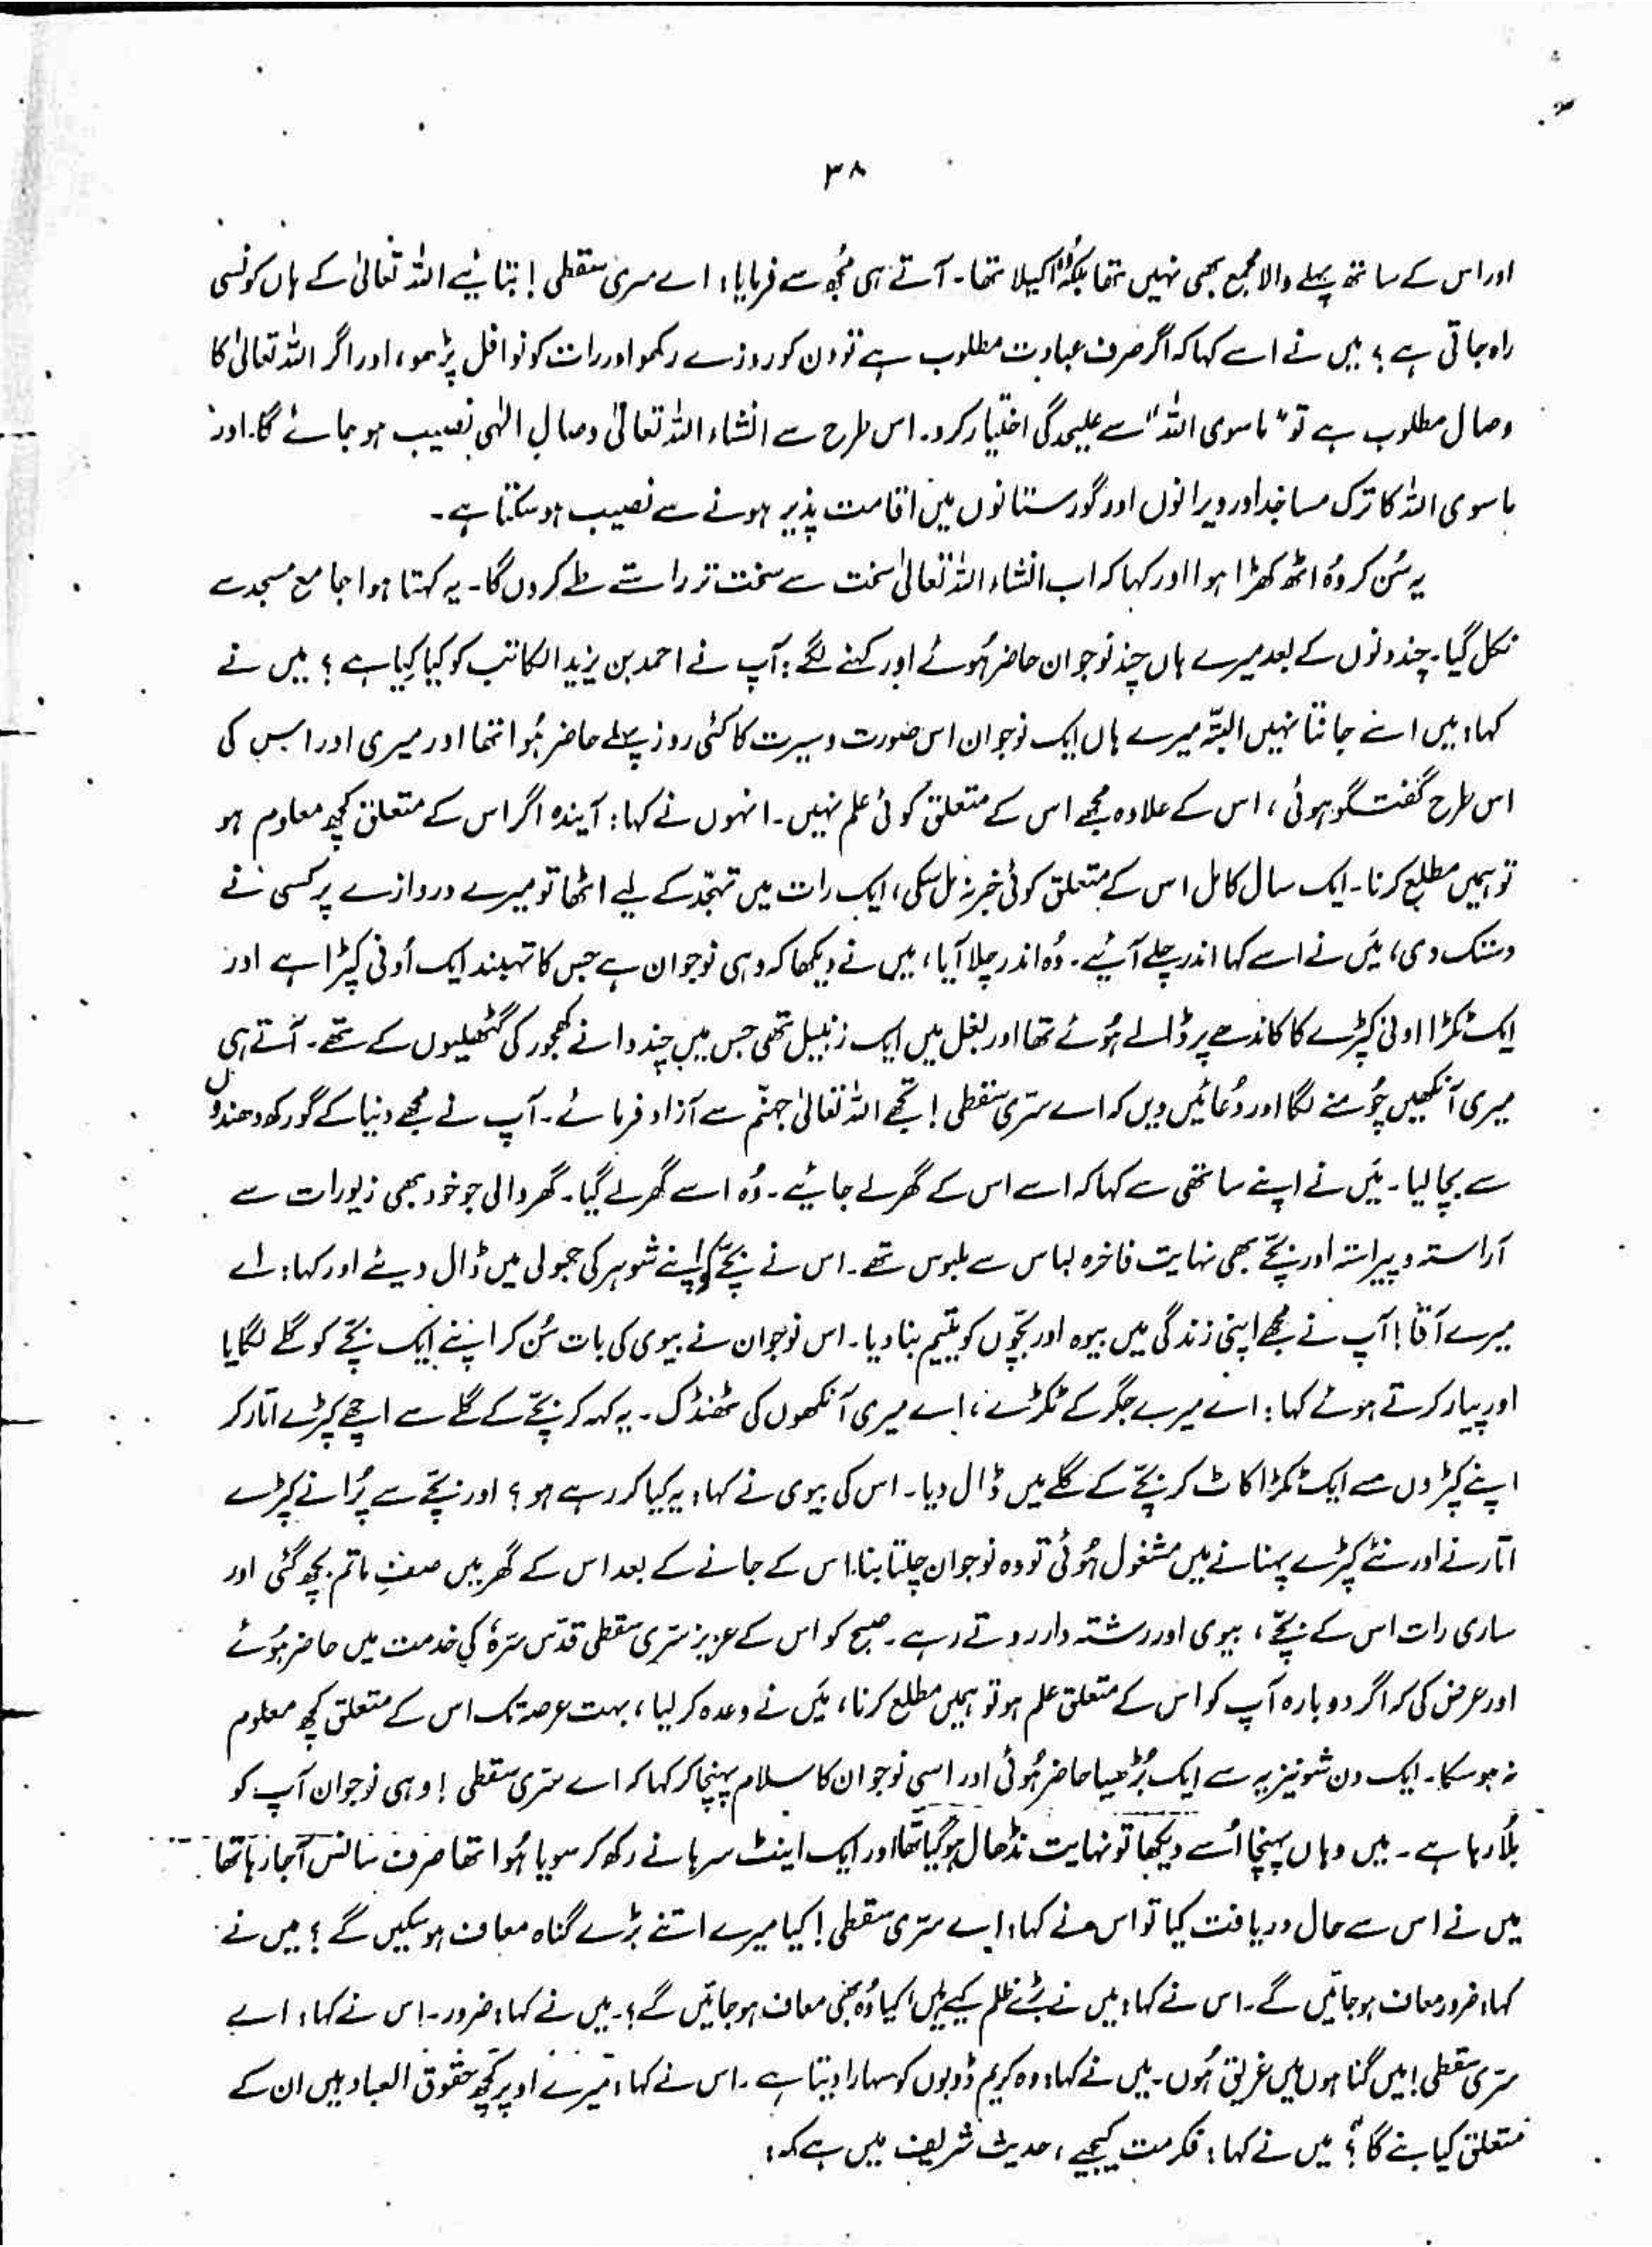 ۳۸
اور اس کے ساتھ پہلے والا مجمع بھی نہیں تھا بلکہ وُہ اکیلا تھا۔ آتے ہی مُجھ سے فرمایا: اے سری سقطی! بتائیے اللہ تعالیٰ کے ہاں کونسی
راہ جاتی ہے؟ میں نے اسے کہا کہ اگر صرف عبادت مطلوب ہے تو دن کو روزے رکھو اور رات کو نوافل پڑھو، اور اگر اللہ تعالیٰ کا
وصال مطلوب ہے تو "ماسوی اللہ" سے علیحدگی اختیار کرو۔ اس طرح سے انشاء اللہ تعالیٰ وصالِ الٰہی نصیب ہو جائے گا۔ اور
ماسوی اللہ کا ترک مساجد اور ویرانوں اور گورستانوں میں اقامت پذیر ہونے سے نصیب ہو سکتا ہے۔
یہ سُن کر وُہ اٹھ کھڑا ہوا اور کہا کہ اب انشاء اللہ تعالیٰ سخت سے سخت تر راستے طے کروں گا۔ یہ کہتا ہوا جامع مسجد سے
نکل گیا۔ چند دنوں کے بعد میرے ہاں چند نوجوان حاضر ہُوئے اور کہنے لگے: آپ نے احمد بن یزید الکاتب کو کیا کِیا ہے؟ میں نے
کہا: میں اسے جانتا نہیں البتّہ میرے ہاں ایک نوجوان اس صورت و سیرت کا کئی روز پہلے حاضر ہُوا تھا اور میری اور اس کی
اس طرح گفتگو ہوئی، اس کے علاوہ مجھے اس کے متعلق کوئی علم نہیں۔ انہوں نے کہا: آیندہ اگر اس کے متعلق کچھ معلوم ہو
تو ہمیں مطلع کرنا۔ ایک سال کامل اس کے متعلق کوئی خبر نہ مل سکی، ایک رات میں تہجّد کے لیے اٹھا تو میرے دروازے پر کسی نے
دستک دی، میَں نے اسے کہا اندر چلے آئیے۔ وُہ اندر چلا آیا، میں نے دیکھا کہ وہی نوجوان ہے جس کا تہبند ایک اُونی کپڑا ہے اور
ایک ٹکڑا اونی کپڑے کا کاندھے پر ڈالے ہُوئے تھا اور بغل میں ایک زنبیل تھی جس میں چند دانے کھجور کی گٹھلیوں کے تھے۔ آتے ہی
میری آنکھیں چُومنے لگا اور دُعائیں دیں کہ اے سرّی سقطی! تجھے اللہ تعالیٰ جہنّم سے آزاد فرمائے۔ آپ نے مجھے دنیا کے گورکھ دھندوں
سے بچا لیا۔ میَں نے اپنے ساتھی سے کہا کہ اسے اس کے گھر لے جائیے۔ وُہ اسے گھر لے گیا۔ گھر والی جو خود بھی زیورات سے
آراستہ و پیراستہ اور بچّے بھی نہایت فاخرہ لباس سے ملبوس تھے۔ اس نے بچّے کو اپنے شوہر کی جھولی میں ڈال دیئے اور کہا: اے
میرے آقا! آپ نے مجھے اپنی زندگی میں بیوہ اور بچّوں کو یتیم بنا دیا۔ اس نوجوان نے بیوی کی بات سُن کر اپنے ایک بچّے کو گلے لگایا
اور پیار کرتے ہوئے کہا: اے میرے جگر کے ٹکڑے، اے میری آنکھوں کی ٹھنڈک۔ یہ کہہ کر بچّے کے گلے سے اچھے کپڑے اتار کر
اپنے کپڑوں سے ایک ٹکڑا کاٹ کر بچّے کے گلے میں ڈال دیا۔ اس کی بیوی نے کہا: یہ کیا کر رہے ہو؟ اور بچّے سے پُرانے کپڑے
اتارنے اور نئے کپڑے پہنانے میں مشغول ہُوئی تو وہ نوجوان چلتا بنا۔ اس کے جانے کے بعد اس کے گھر میں صفِ ماتم بچھ گئی اور
ساری رات اس کے بچّے، بیوی اور رشتہ دار روتے رہے۔ صبح کو اس کے عزیز سرّی سقطی قدّس سرّہٗ کی خدمت میں حاضر ہُوئے
اور عرض کی کہ اگر دوبارہ آپ کو اس کے متعلق علم ہو تو ہمیں مطلع کرنا، میَں نے وعدہ کر لیا، بہت عرصہ تک اس کے متعلق کچھ معلوم
نہ ہو سکا۔ ایک دن شونیزیہ سے ایک بُڑھیا حاضر ہُوئی اور اسی نوجوان کا سلام پہنچا کر کہا کہ اے سرّی سقطی! وہی نوجوان آپ کو
بُلا رہا ہے۔ میں وہاں پہنچا اُسے دیکھا تو نہایت نڈھال ہو گیا تھا اور ایک اینٹ سرہانے رکھ کر سویا ہُوا تھا صرف سانس آ جا رہا تھا
میں نے اس سے حال دریافت کیا تو اس نے کہا: اے سرّی سقطی! کیا میرے اتنے بڑے گناہ معاف ہو سکیں گے؟ میں نے
کہا: ضرور معاف ہو جائیں گے۔ اس نے کہا: میں نے بڑے ظلم کیے ہیں، کیا وُہ بھی معاف ہو جائیں گے؟۔ میں نے کہا: ضرور۔ اس نے کہا: اے
سرّی سقطی! میں گناہوں میں غریق ہُوں۔ میں نے کہا: وہ کریم ڈوبوں کو سہارا دیتا ہے۔ اس نے کہا: میرے اوپر کچھ حقوق العباد ہیں ان کے
متعلق کیا بنے گا؟ میں نے کہا: فکر مت کیجیے، حدیث شریف میں ہے کہ: